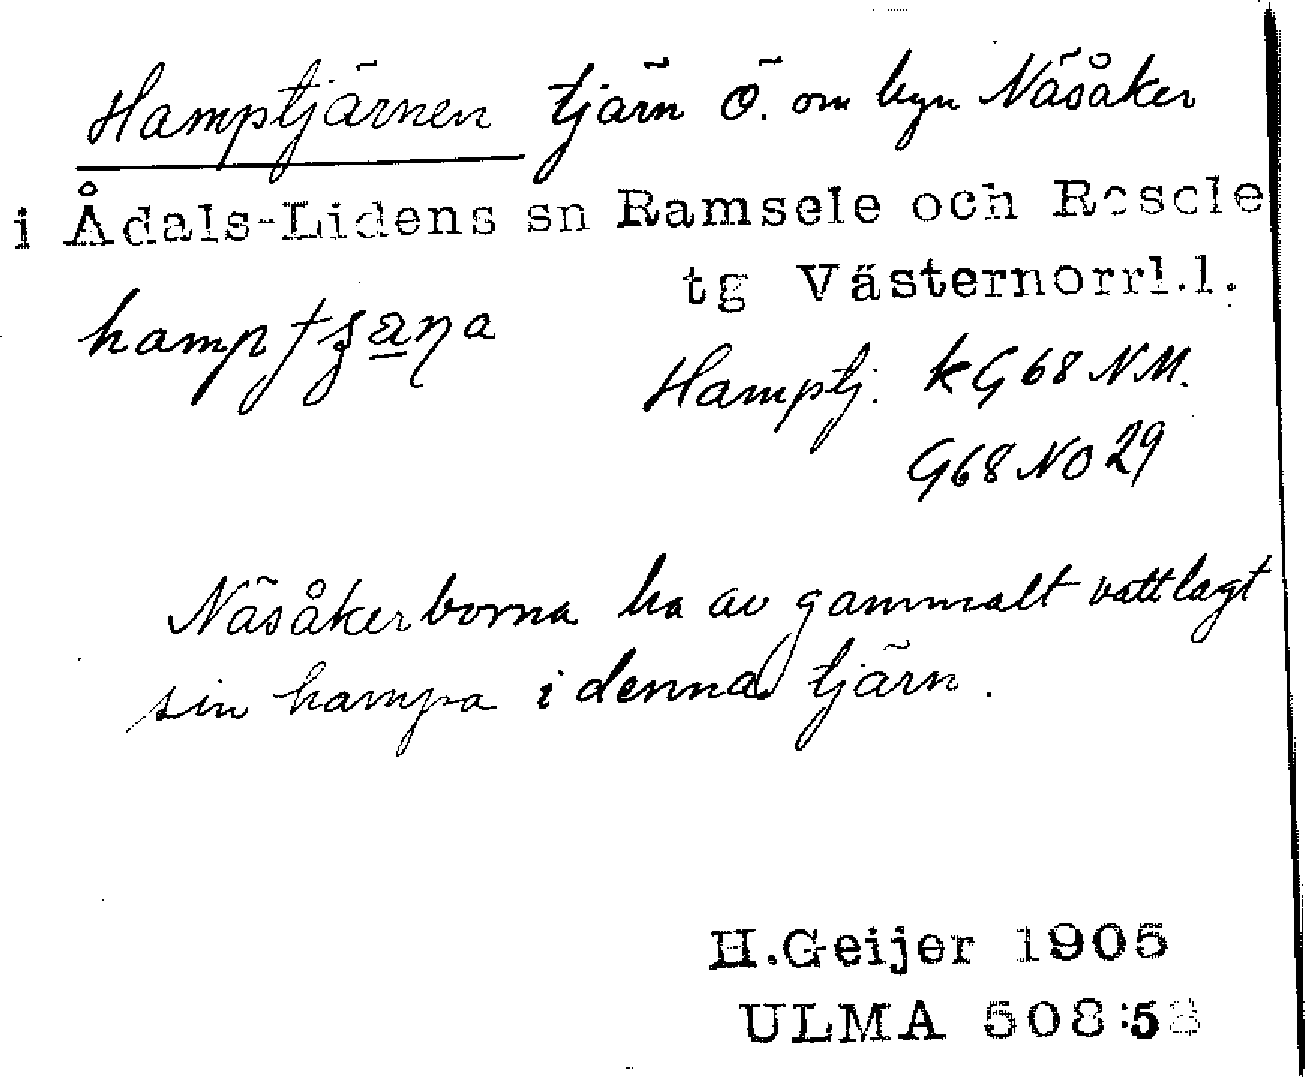 Hamptjärnen tjärn Ö. om byn Näsåker
i Ådals-Lidens sn Ramsele och Resele
tg Västernorrl.l.
Hamptj. kG68NM.
G68NO29
Näsåkerborna ha av gammalt vattlagt
sin hampa i denna tjärn.
H.Geijer 1905
ULMA 508:5